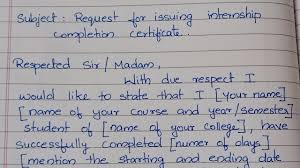 Subject: Request for issuing internship
completion certificate.
Respected Sir/Madam,
With due respect I
would like to state that I [your name]
[name of your course and year/Semester]
Student of [name of your college], have
successfully completed [numer of days]
[mention the starting and ending date